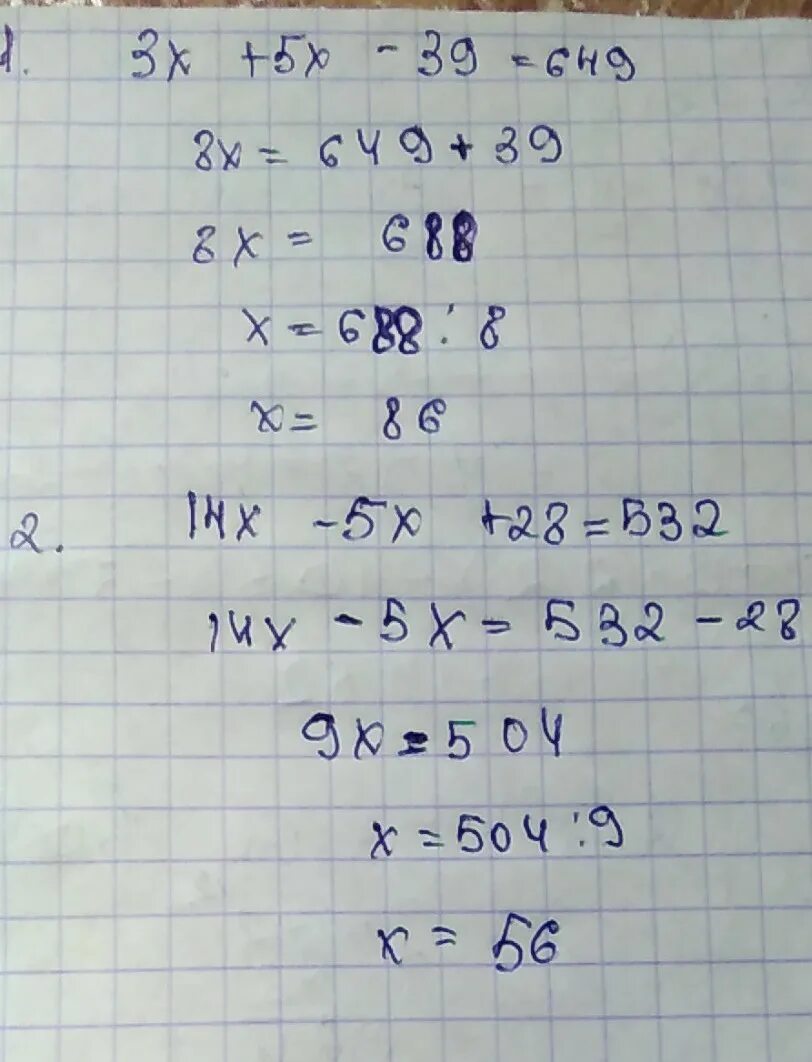 1. 3x + 5x - 39 = 649
8x = 649 + 39
8x = 688
x = 688 : 8
x = 86
2. 14x - 5x + 28 = 532
14x - 5x = 532 - 28
9x = 504
x = 504 : 9
x = 56